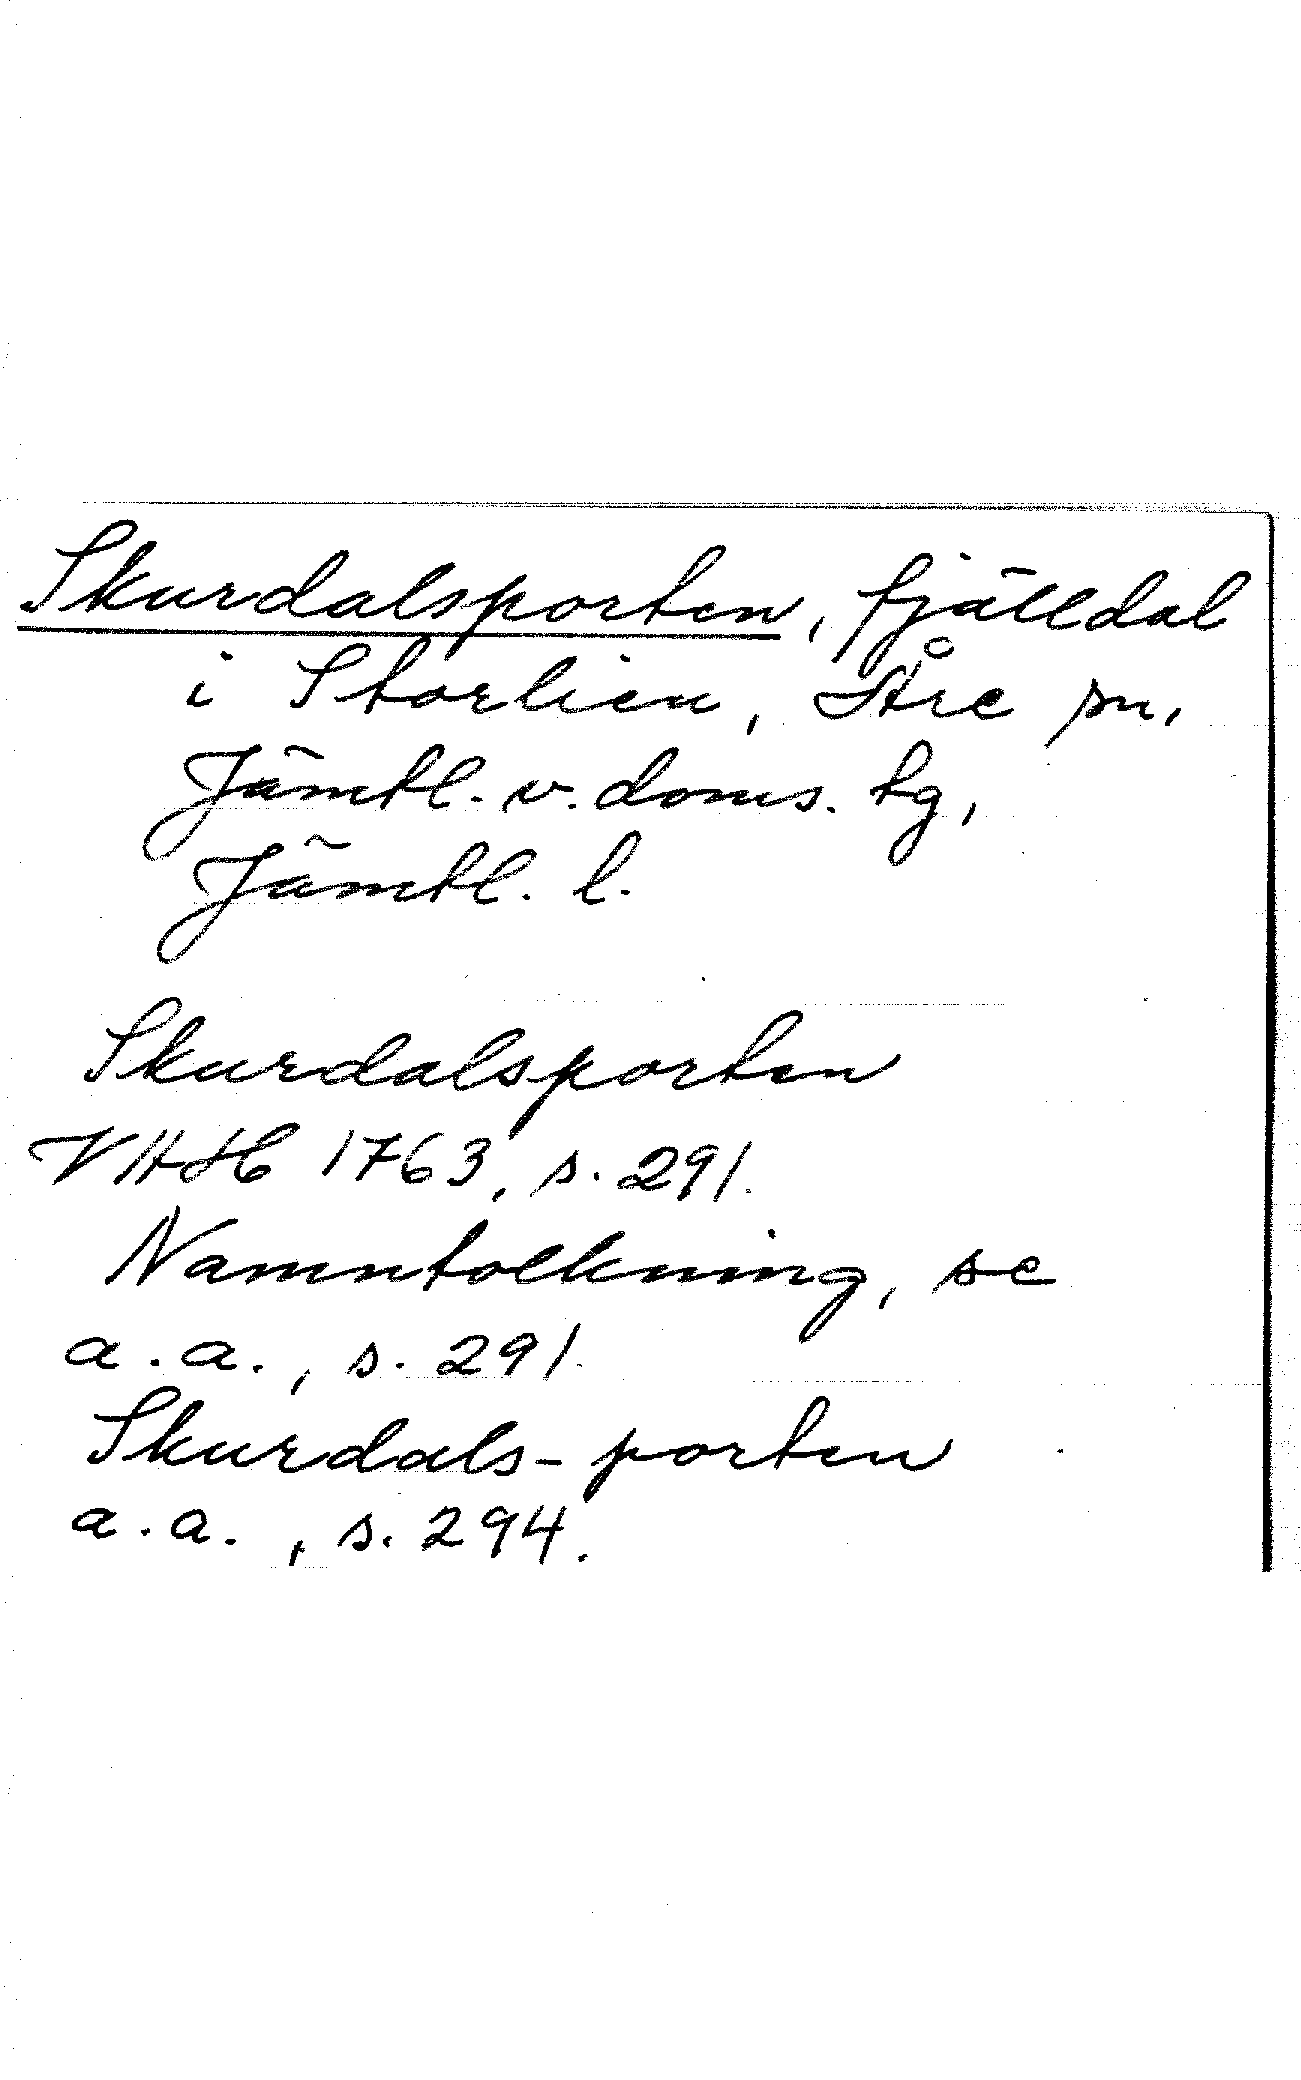 Skurdalsporten, fjälldal
i Storlien, Åre sn,
Jämtl. v. doms. tg,
Jämtl. l.
Skurdalsporten
VHAH 1763, s. 291.
Namntolkning, se
a.a., s. 291.
Skurdals-porten
a.a., s. 294.